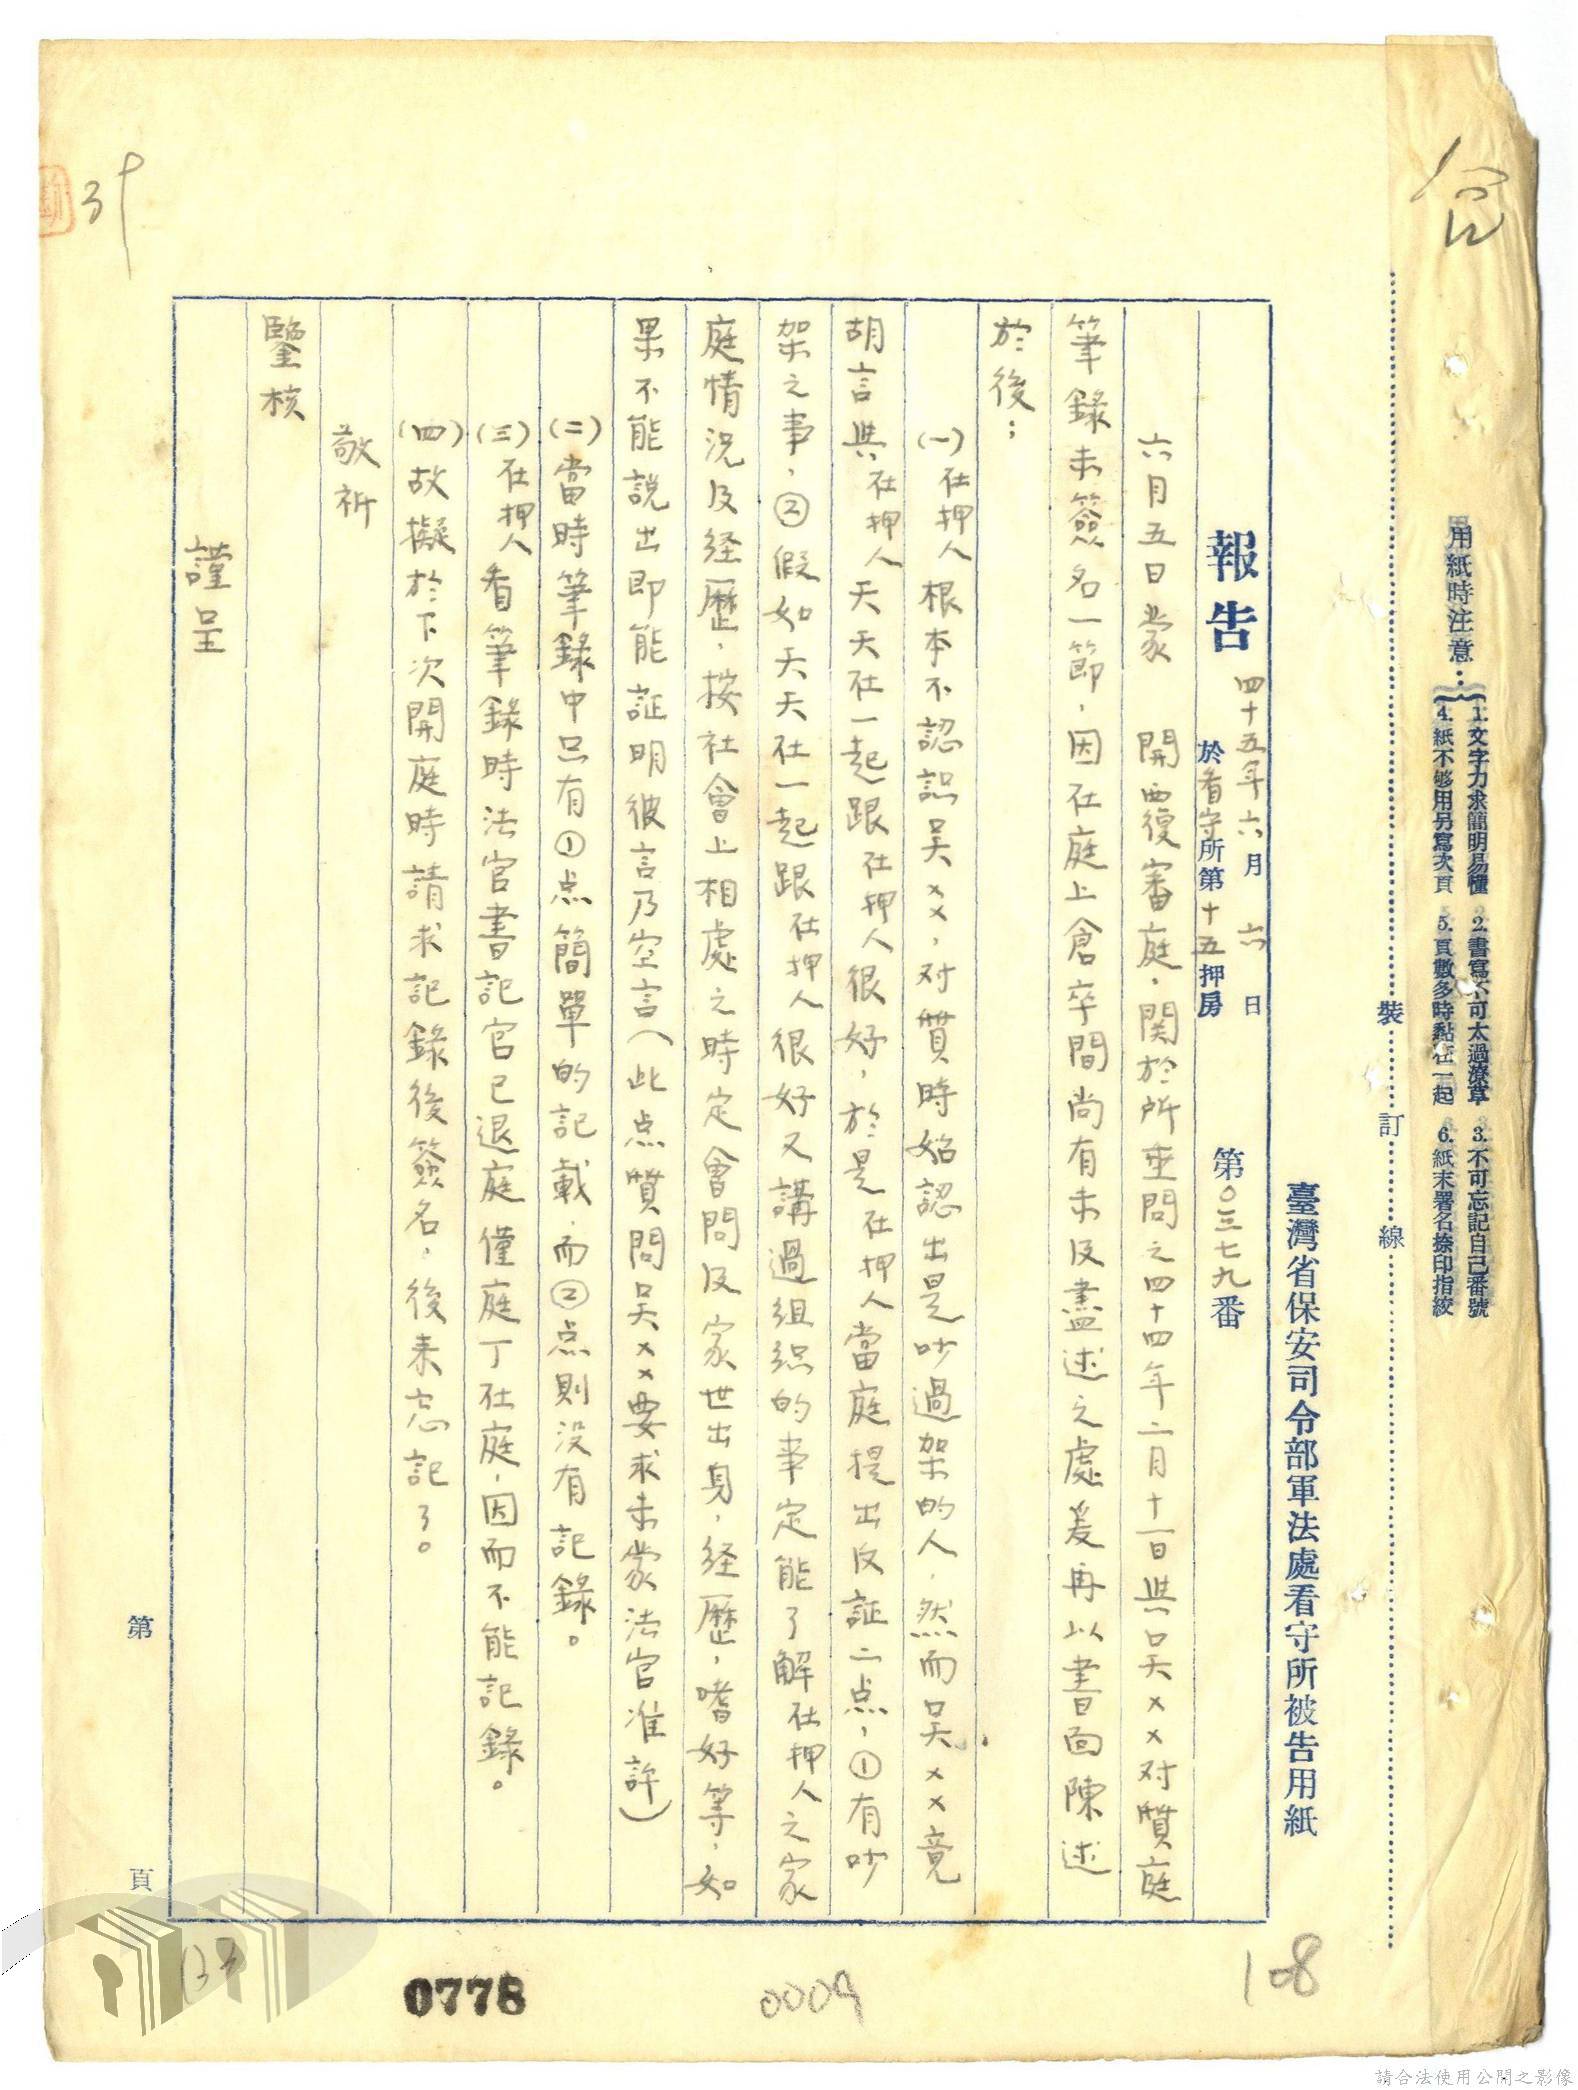 用紙時注意：
1. 文字力求簡明易懂 2. 書寫不可太過潦草 3. 不可忘記自己番號
4. 紙不够用另寫次頁 5. 頁數多時黏在一起 6. 紙末署名捺印指紋
裝 訂 線
臺灣省保安司令部軍法處看守所被告用紙
報告 四十五年六月六日
於看守所第十五押房 第0三七九番
六月五日蒙 開西復審庭，関於所垂問之四十四年二月十一日與吴××对質庭
筆錄未簽名一節，因在庭上倉卒間尚有未及盡述之處爰再以書面陳述
於後；
(一)在押人根本不認識吴××，对質時始認出是吵過架的人，然而吴××竟
胡言與在押人天天在一起跟在押人很好，於是在押人當庭提出反証二点，①有吵
架之事，②假如天天在一起跟在押人很好又講過組織的事定能了解在押人之家
庭情況及経歷，按社會上相處之時定會問及家世出身，経歷，嗜好等，如
果不能説出即能証明彼言乃空言(此点質問吴××要求未蒙法官准許)
(二)當時筆錄中只有①点簡單的記載，而②点則没有記錄。
(三)在押人看筆錄時法官書記官已退庭僅庭丁在庭，因而不能記錄。
(四)故擬於下次開庭時請求記錄後簽名，後来忘記了。
敬祈
鑒核
謹呈
第 頁
0778
0009
108
請合法使用公開之影像